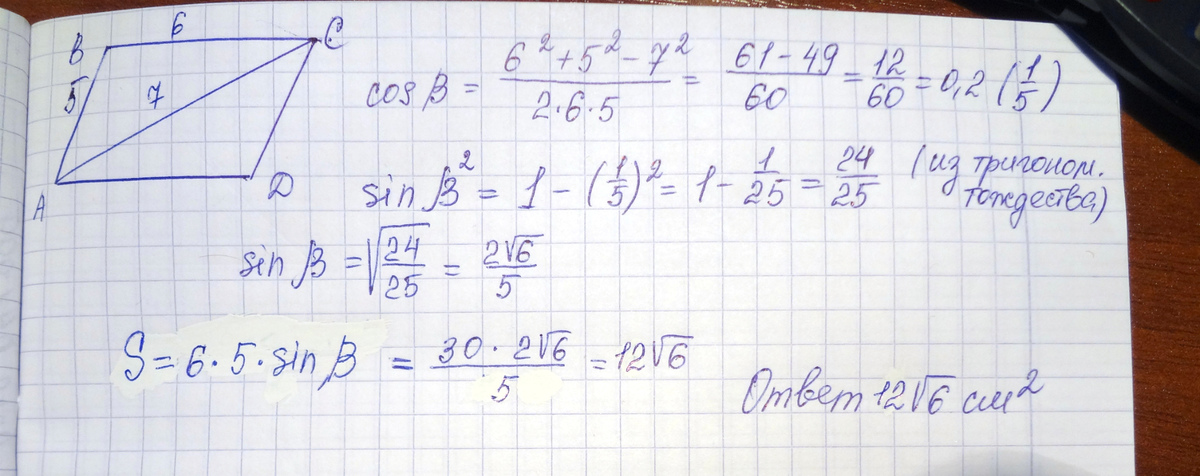 B 6 C
5 7
A D
cos β = (6² + 5² - 7²)/(2·6·5) = (61 - 49)/60 = 12/60 = 0,2 (1/5)
sin β² = 1 - (1/5)² = 1 - 1/25 = 24/25 (из тригоном. тождества)
sin β = √(24/25) = 2√6/5
S = 6·5·sin β = (30·2√6)/5 = 12√6
Ответ 12√6 см²